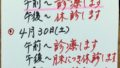 午前〜診療します
午後〜休診します
●4月30日(土)
午前〜診療します
午後〜臨時休診します